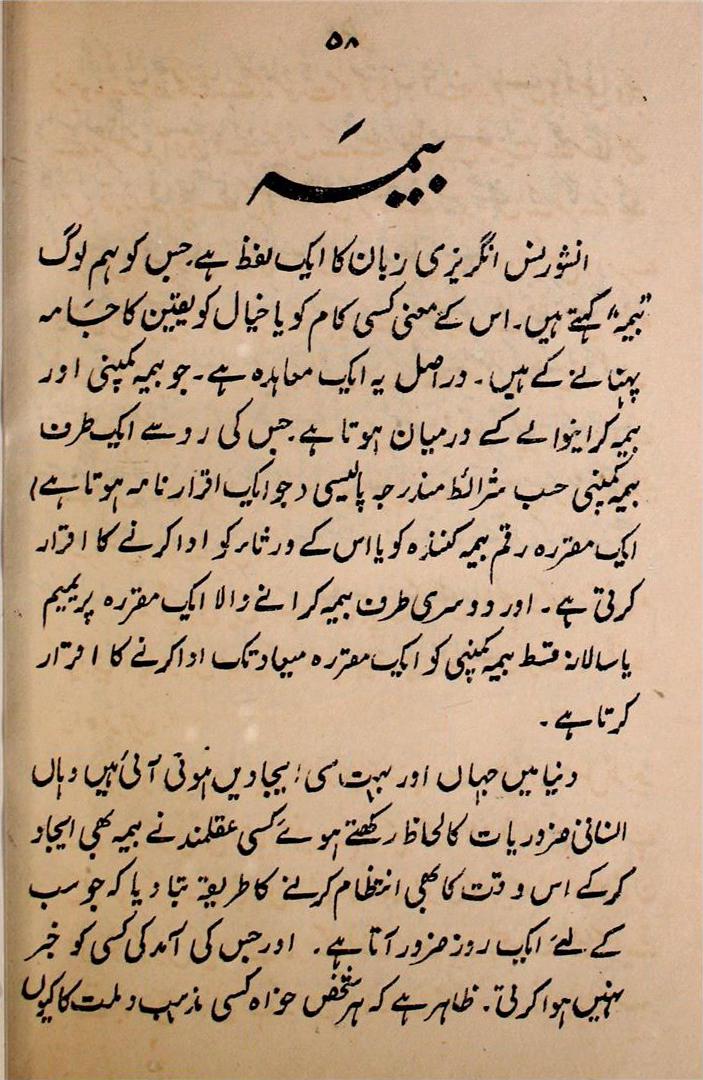 ۵۸
بیمہ
انشورنس انگریزی زبان کا ایک لفظ ہے جس کو ہم لوگ
"بیمہ" کہتے ہیں۔ اس کے معنی کسی کام کو یا خیال کو یقین کا جامہ
پہنانے کے ہیں۔ دراصل یہ ایک معاہدہ ہے۔ جو بیمہ کمپنی اور
بیمہ کرانیوالے کے درمیان ہوتا ہے جس کی رو سے ایک طرف
بیمہ کمپنی حسب شرائط مندرجہ پالیسی (جو ایک اقرار نامہ ہوتا ہے)
ایک مقررہ رقم بیمہ کنندہ کو یا اس کے ورثاء کو ادا کرنے کا اقرار
کرتی ہے۔ اور دوسری طرف بیمہ کرانے والا ایک مقررہ پریمیم
یا سالانہ قسط بیمہ کمپنی کو ایک مقررہ میعاد تک ادا کرنے کا اقرار
کرتا ہے۔
دنیا میں جہاں اور بہت سی ایجادیں ہوتی آئی ہیں وہاں
انسانی ضروریات کا لحاظ رکھتے ہوئے کسی عقلمند نے بیمہ بھی ایجاد
کرکے اس وقت کا بھی انتظام کرنے کا طریقہ بتا دیا کہ جو سب
کے لئے ایک روز ضرور آتا ہے۔ اور جس کی آمد کی کسی کو خبر
نہیں ہوا کرتی۔ ظاہر ہے کہ ہر شخص خواہ کسی مذہب و ملت کا کیوں